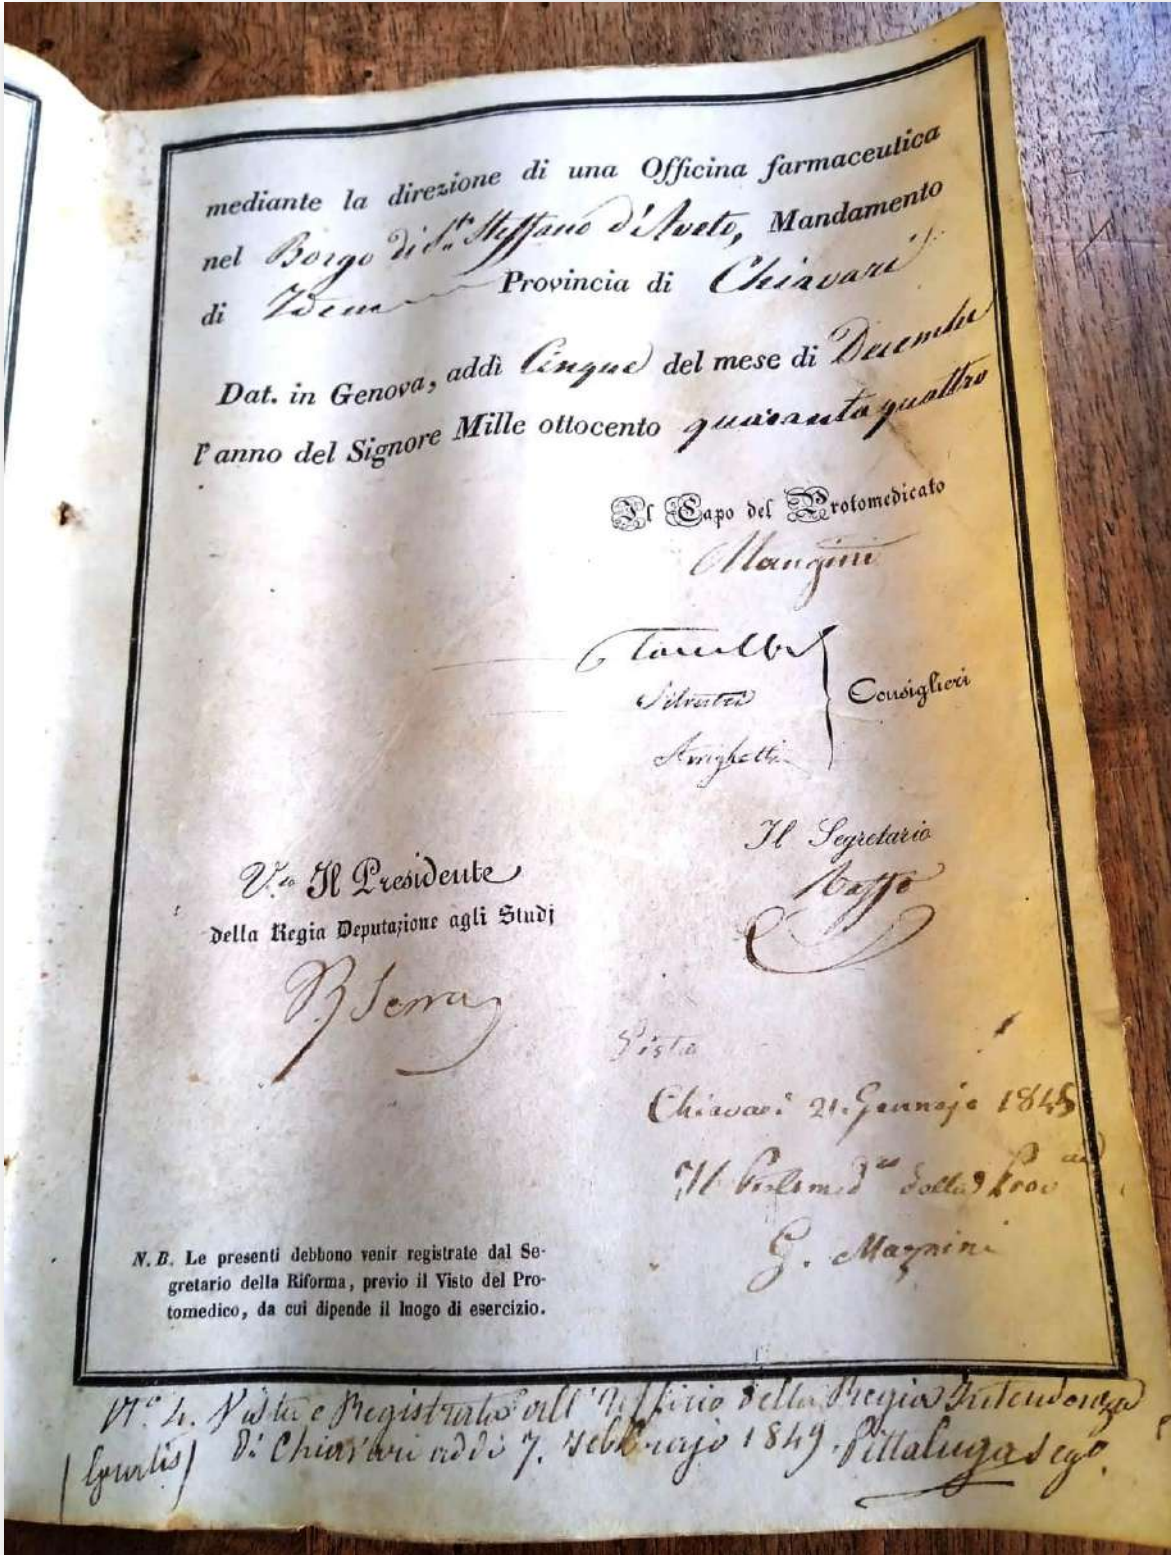 mediante la direzione di una Officina farmaceutica
nel Borgo di S.to Steffano d'Aveto, Mandamento
di Idem Provincia di Chiavari
Dat. in Genova, addì Cinque del mese di Decembre
l'anno del Signore Mille ottocento quaranta quattro
Il Capo del Protomedicato
Mangini
Silvestri
Consiglieri
Arrighetti
Il Segretario
V.to Il Presidente
della Regia Deputazione agli Studj
Serra
Visto
Chiavari 21. Gennajo 1845
Il Protomed.co della Prov
G. Mazzini
N. B. Le presenti debbono venir registrate dal Se-
gretario della Riforma, previo il Visto del Pro-
tomedico, da cui dipende il luogo di esercizio.
N.o 4. Visto e Registrato all'Ufficio della Regia Intendenza
(Gratis) di Chiavari addì 7. Febbrajo 1849. Pittaluga Seg.o